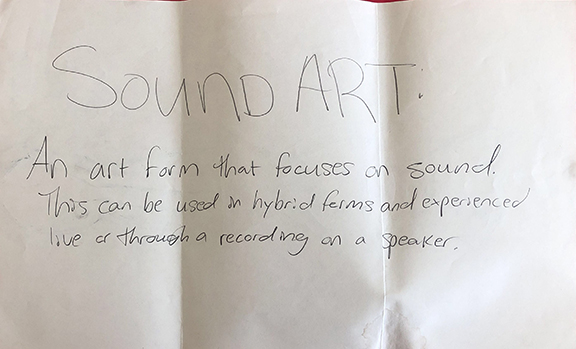 SOUND ART:
An art form that focuses on sound.
This can be used in hybrid forms and experienced
live or through a recording on a speaker.